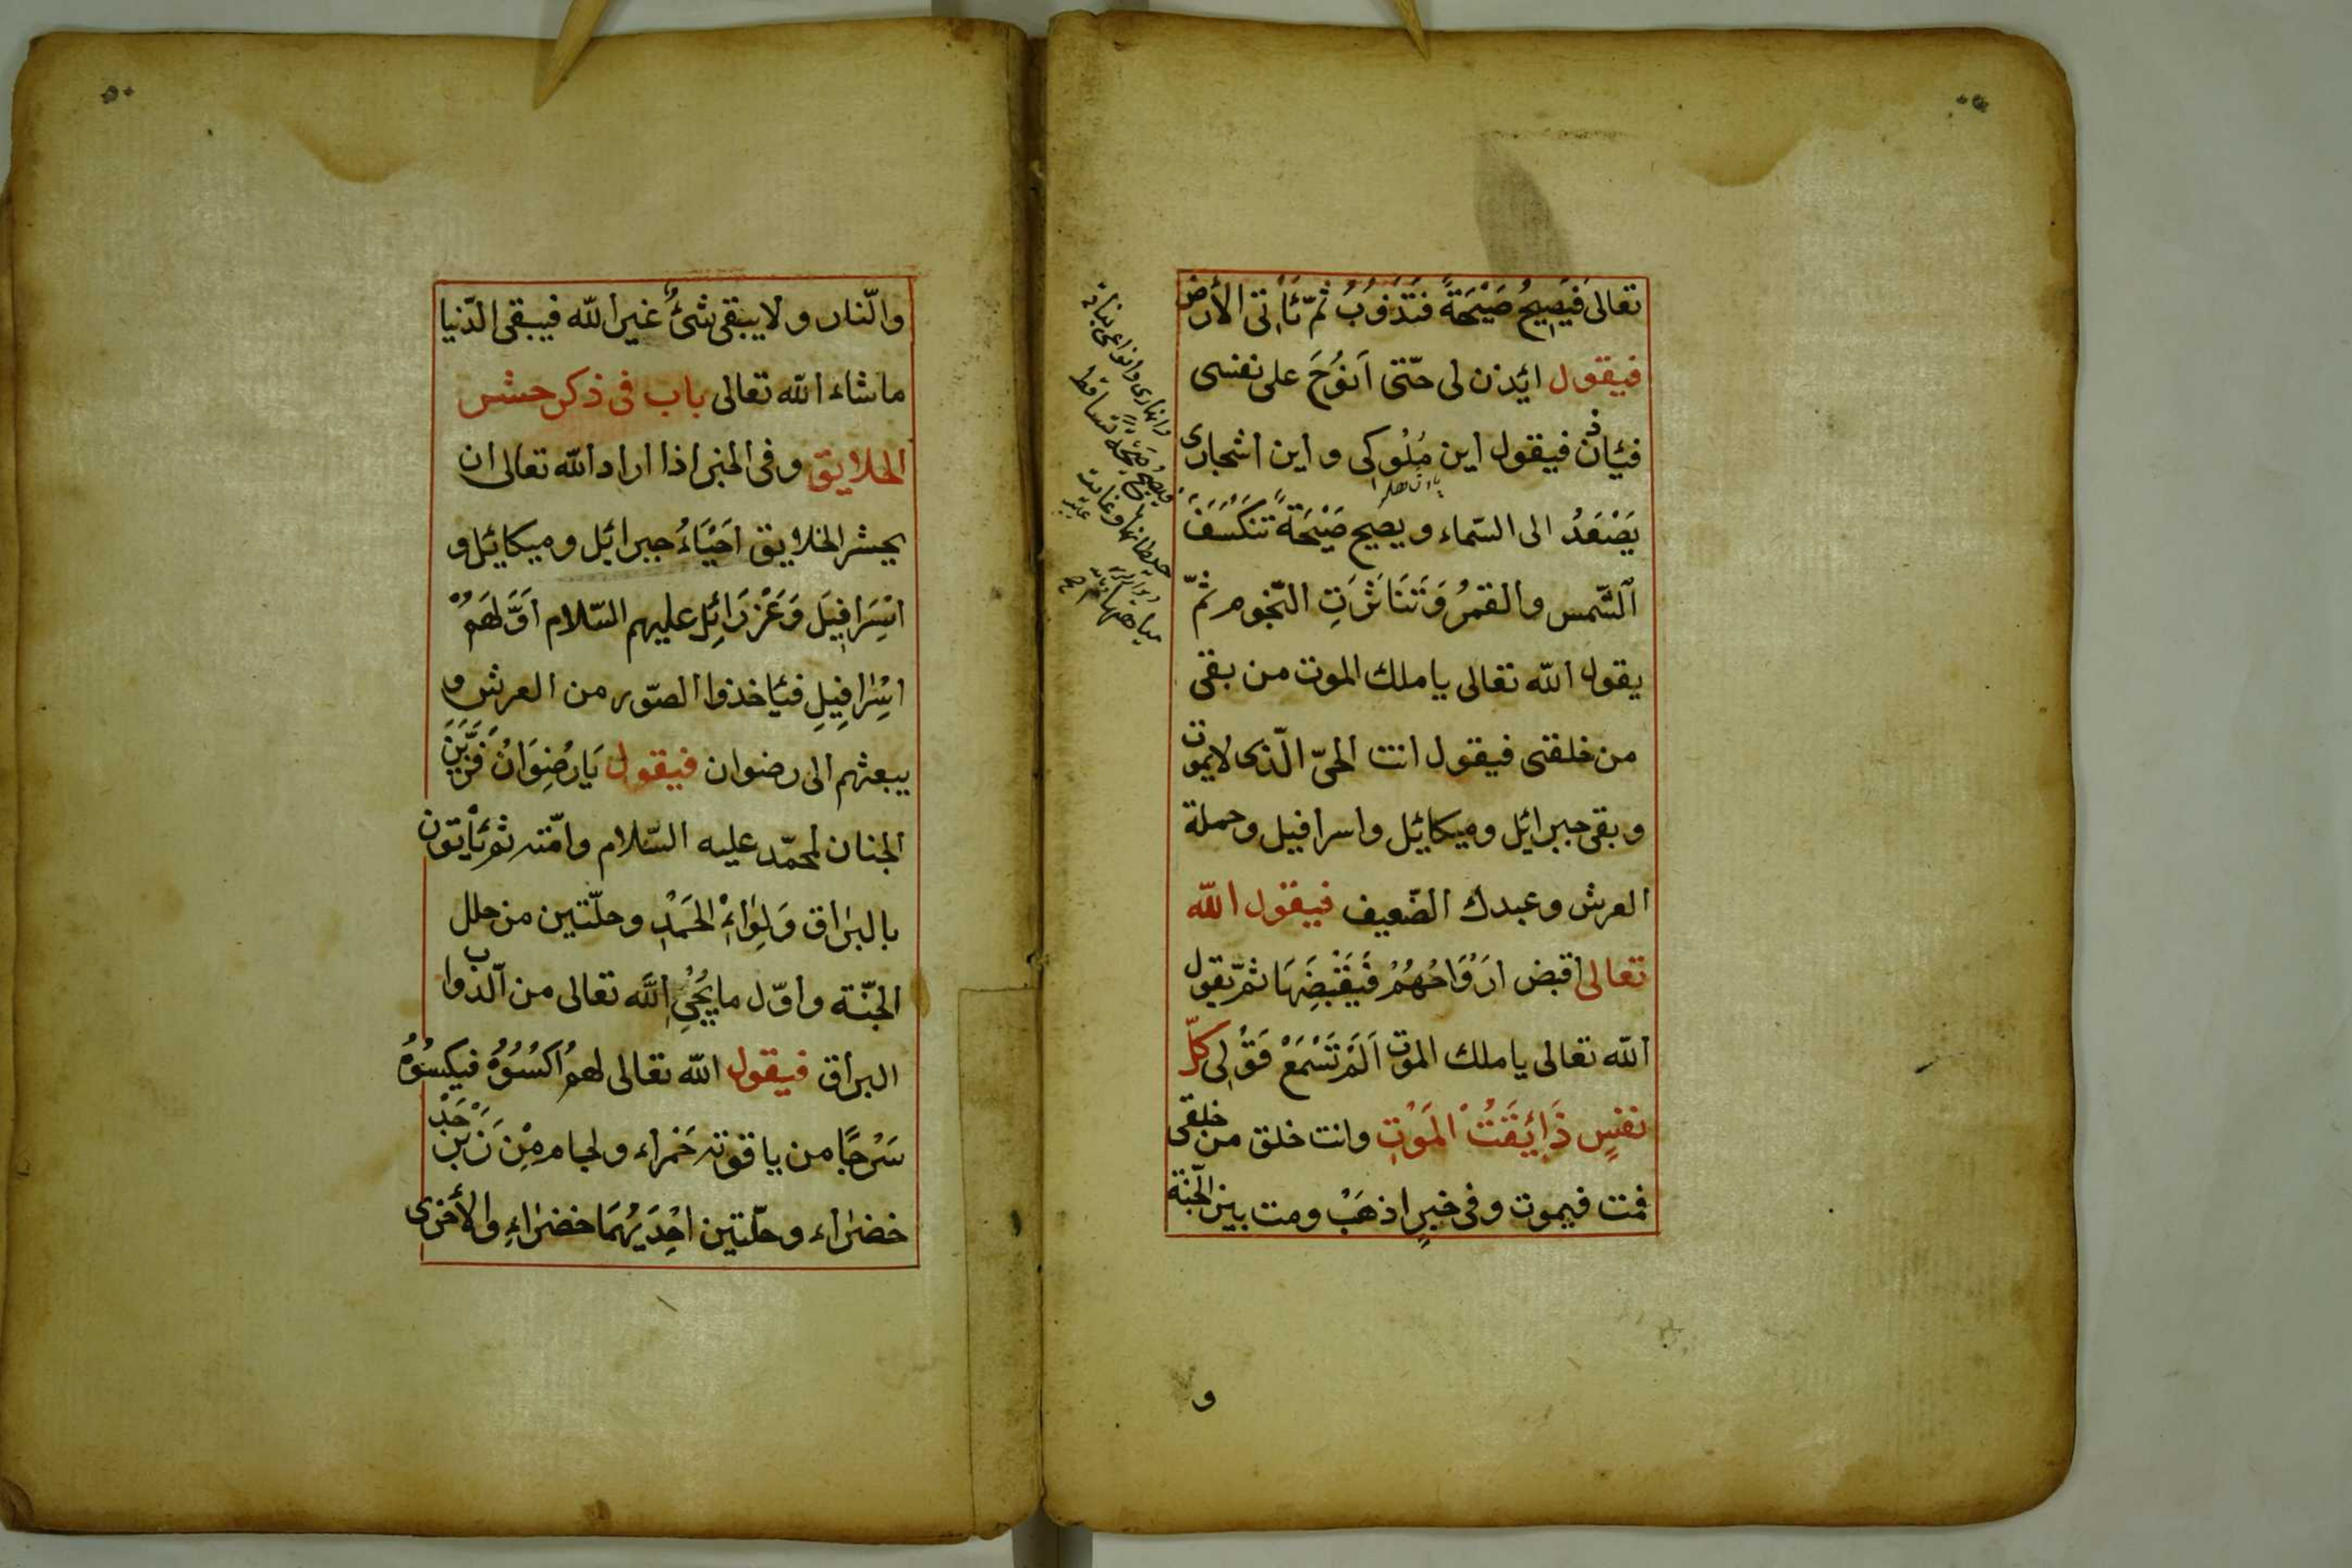 تعالى فَيَصِيحُ صَيْحَةً فَتَذُوبُ ثمّ تَأْتى الأرض
فيقول ائذن لى حتّى اَنُوحَ على نفسى
فيأذن فيقول اين مُلُوكى و اين اشجارى
يَصْعَدُ الى السّماء و يصيح صَيْحَةً تَنكَسَفَ
الشّمس والقمرُ وَتَنَاثَرَتِ النّجوم ثمّ
يقول الله تعالى يا ملك الموت من بقى
من خلقى فيقول انت الحىّ الّذى لايموت
و بقى جبرائيل وميكائيل واسرافيل وحملة
العرش وعبدك الضّعيف فيقول الله
تعالى اقبض اَرْوَاحُهُمْ فَيَقْبِضَهَا ثمّ يقول
الله تعالى يا ملك الموت اَلَمْ تَسْمَعْ قَوْلِى كلّ
نفسٍ ذَائِقَتُ الْمَوْتِ وانت خلق من خلقى
فمت فيموت وفى خبرٍ اذهَبْ ومت بين الجنّة
و
وانهارى وانواع نباتى
فيصيح صَيْحَةً تساقط
حيطانها
مياهها
٥٠
والنّار و لا يبقى شئٌ غير الله فيبقى الدّنيا
ماشاء الله تعالى باب فى ذكر حشر
الخلايق وفى الخبر اذا اراد الله تعالى ان
يحشر الخلايق اَحْيَاءُ جبرائيل وميكائيل و
اِسْرَافِيلَ وَعَزْرَائِلِ عليهم السّلام اَوَّلَهُمْ
اِسْرَافِيلِ فيأخذوا الصّور من العرش و
يبعثهم الى رضوان فيقول يَا رِضْوَانُ فَزَيِّنَ
الجنان لمحمّد عليه السّلام وامّته ثم يأتون
بالبراق وَلِوَاءِ الْحَمْدِ وحلّتين من حلل
الجنّة واوّل ما يُحْيِ اللّه تعالى من الّدواب
البراق فيقول الله تعالى لهم اُكْسُوُهُ فيكسُوُهُ
سَرْجًا من ياقوته حَمراء ولجام مِن زَبَرْجَدْ
خضراء وحلّتين اِحْدَيهُمَا خضراءِ والأخرى